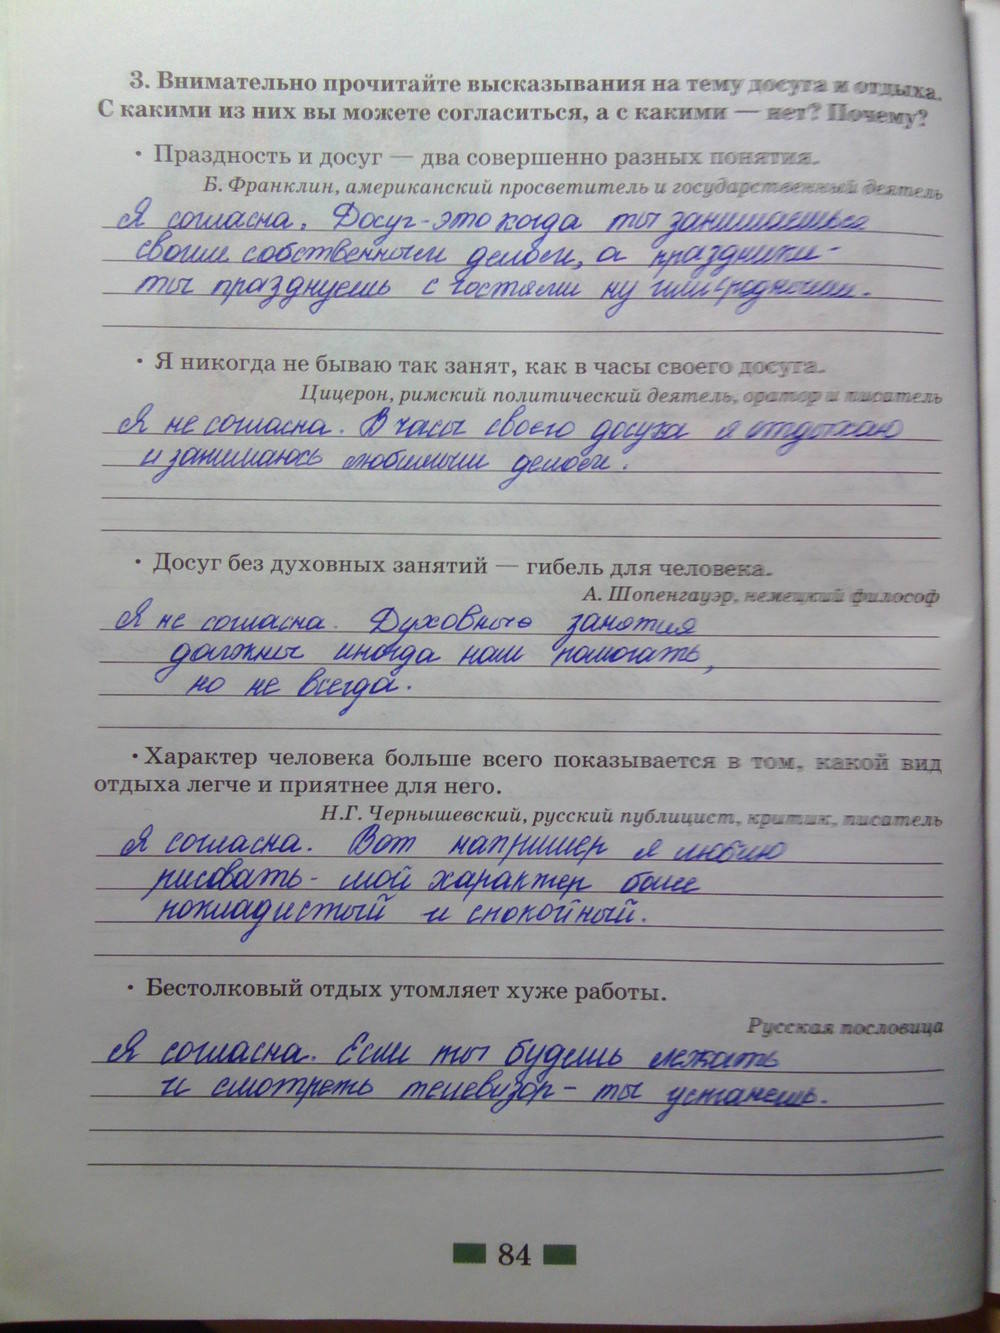 3. Внимательно прочитайте высказывания на тему досуга и отдыха.
С какими из них вы можете согласиться, а с какими — нет? Почему?
• Праздность и досуг — два совершенно разных понятия.
Б. Франклин, американский просветитель и государственный деятель
Я согласна. Досуг - это когда ты занимаешься
своим собственным делом, а праздники -
ты празднуешь с гостями ну или с родными.
• Я никогда не бываю так занят, как в часы своего досуга.
Цицерон, римский политический деятель, оратор и писатель
Я не согласна. В часы своего досуга я отдыхаю
и занимаюсь любимым делом.
• Досуг без духовных занятий — гибель для человека.
А. Шопенгауэр, немецкий философ
Я не согласна. Духовные занятия
должны иногда нам помогать,
но не всегда.
• Характер человека больше всего показывается в том, какой вид
отдыха легче и приятнее для него.
Н.Г. Чернышевский, русский публицист, критик, писатель
Я согласна. Вот например я люблю
рисовать - мой характер более
покладистый и спокойный.
• Бестолковый отдых утомляет хуже работы.
Русская пословица
Я согласна. Если ты будешь лежать
и смотреть телевизор - ты устанешь.
84